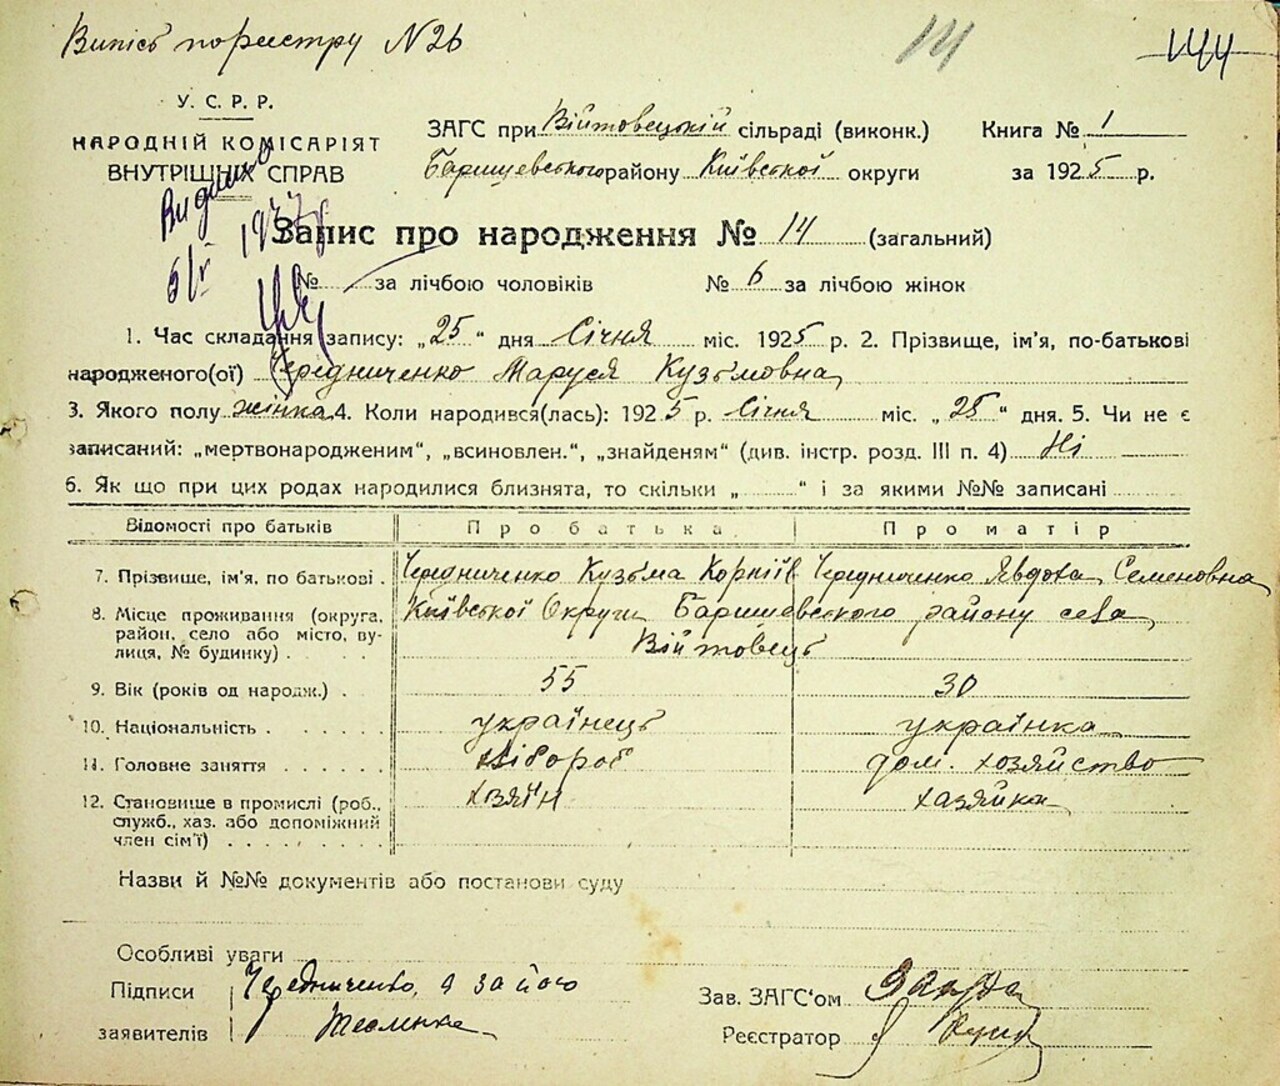 Випісь пореєстру N26
14
144
У. С. Р. Р.
НАРОДНІЙ КОМІСАРІЯТ
ВНУТРІШНІХ СПРАВ
ЗАГС при Війтовецькій сільраді (виконк.) Книга № 1
Баришевського району Київської округи за 1925 р.
Запис про народження № 14 (загальний)
№ за лічбою чоловіків № 6 за лічбою жінок
1. Час складання запису: „25“ дня Січня міс. 1925 р. 2. Прізвище, ім'я, по-батькові
народженого(ої) Чередниченко Маруся Кузьмовна
3. Якого полу жінка 4. Коли народився(лась): 1925 р. Січня міс. „25“ дня. 5. Чи не є
записаний: „мертвонародженим“, „всиновлен.“, „знайденям“ (див. інстр. розд. III п. 4) Ні
6. Як що при цих родах народилися близнята, то скільки „ “ і за якими №№ записані
Відомості про батьків Про батька Про матір
7. Прізвище, ім'я, по батькові . Чередниченко Кузьма Корніїв Чередниченко Явдоха Семеновна
8. Місце проживання (округа, Київської Округи Баришевського району села
район, село або місто, ву- Війтовець
лиця, № будинку) .
9. Вік (років од народж.) . 55 30
10. Національність . українець українка
11. Головне заняття . хлібороб дом. хозяйство
12. Становище в промислі (роб., хозяїн хазяйка
служб., хаз. або допоміжний
член сім'ї) .
Назви й №№ документів або постанови суду
Особливі уваги
Підписи Чередниченко, а за його Зав. ЗАГС'ом
заявителів Реєстратор